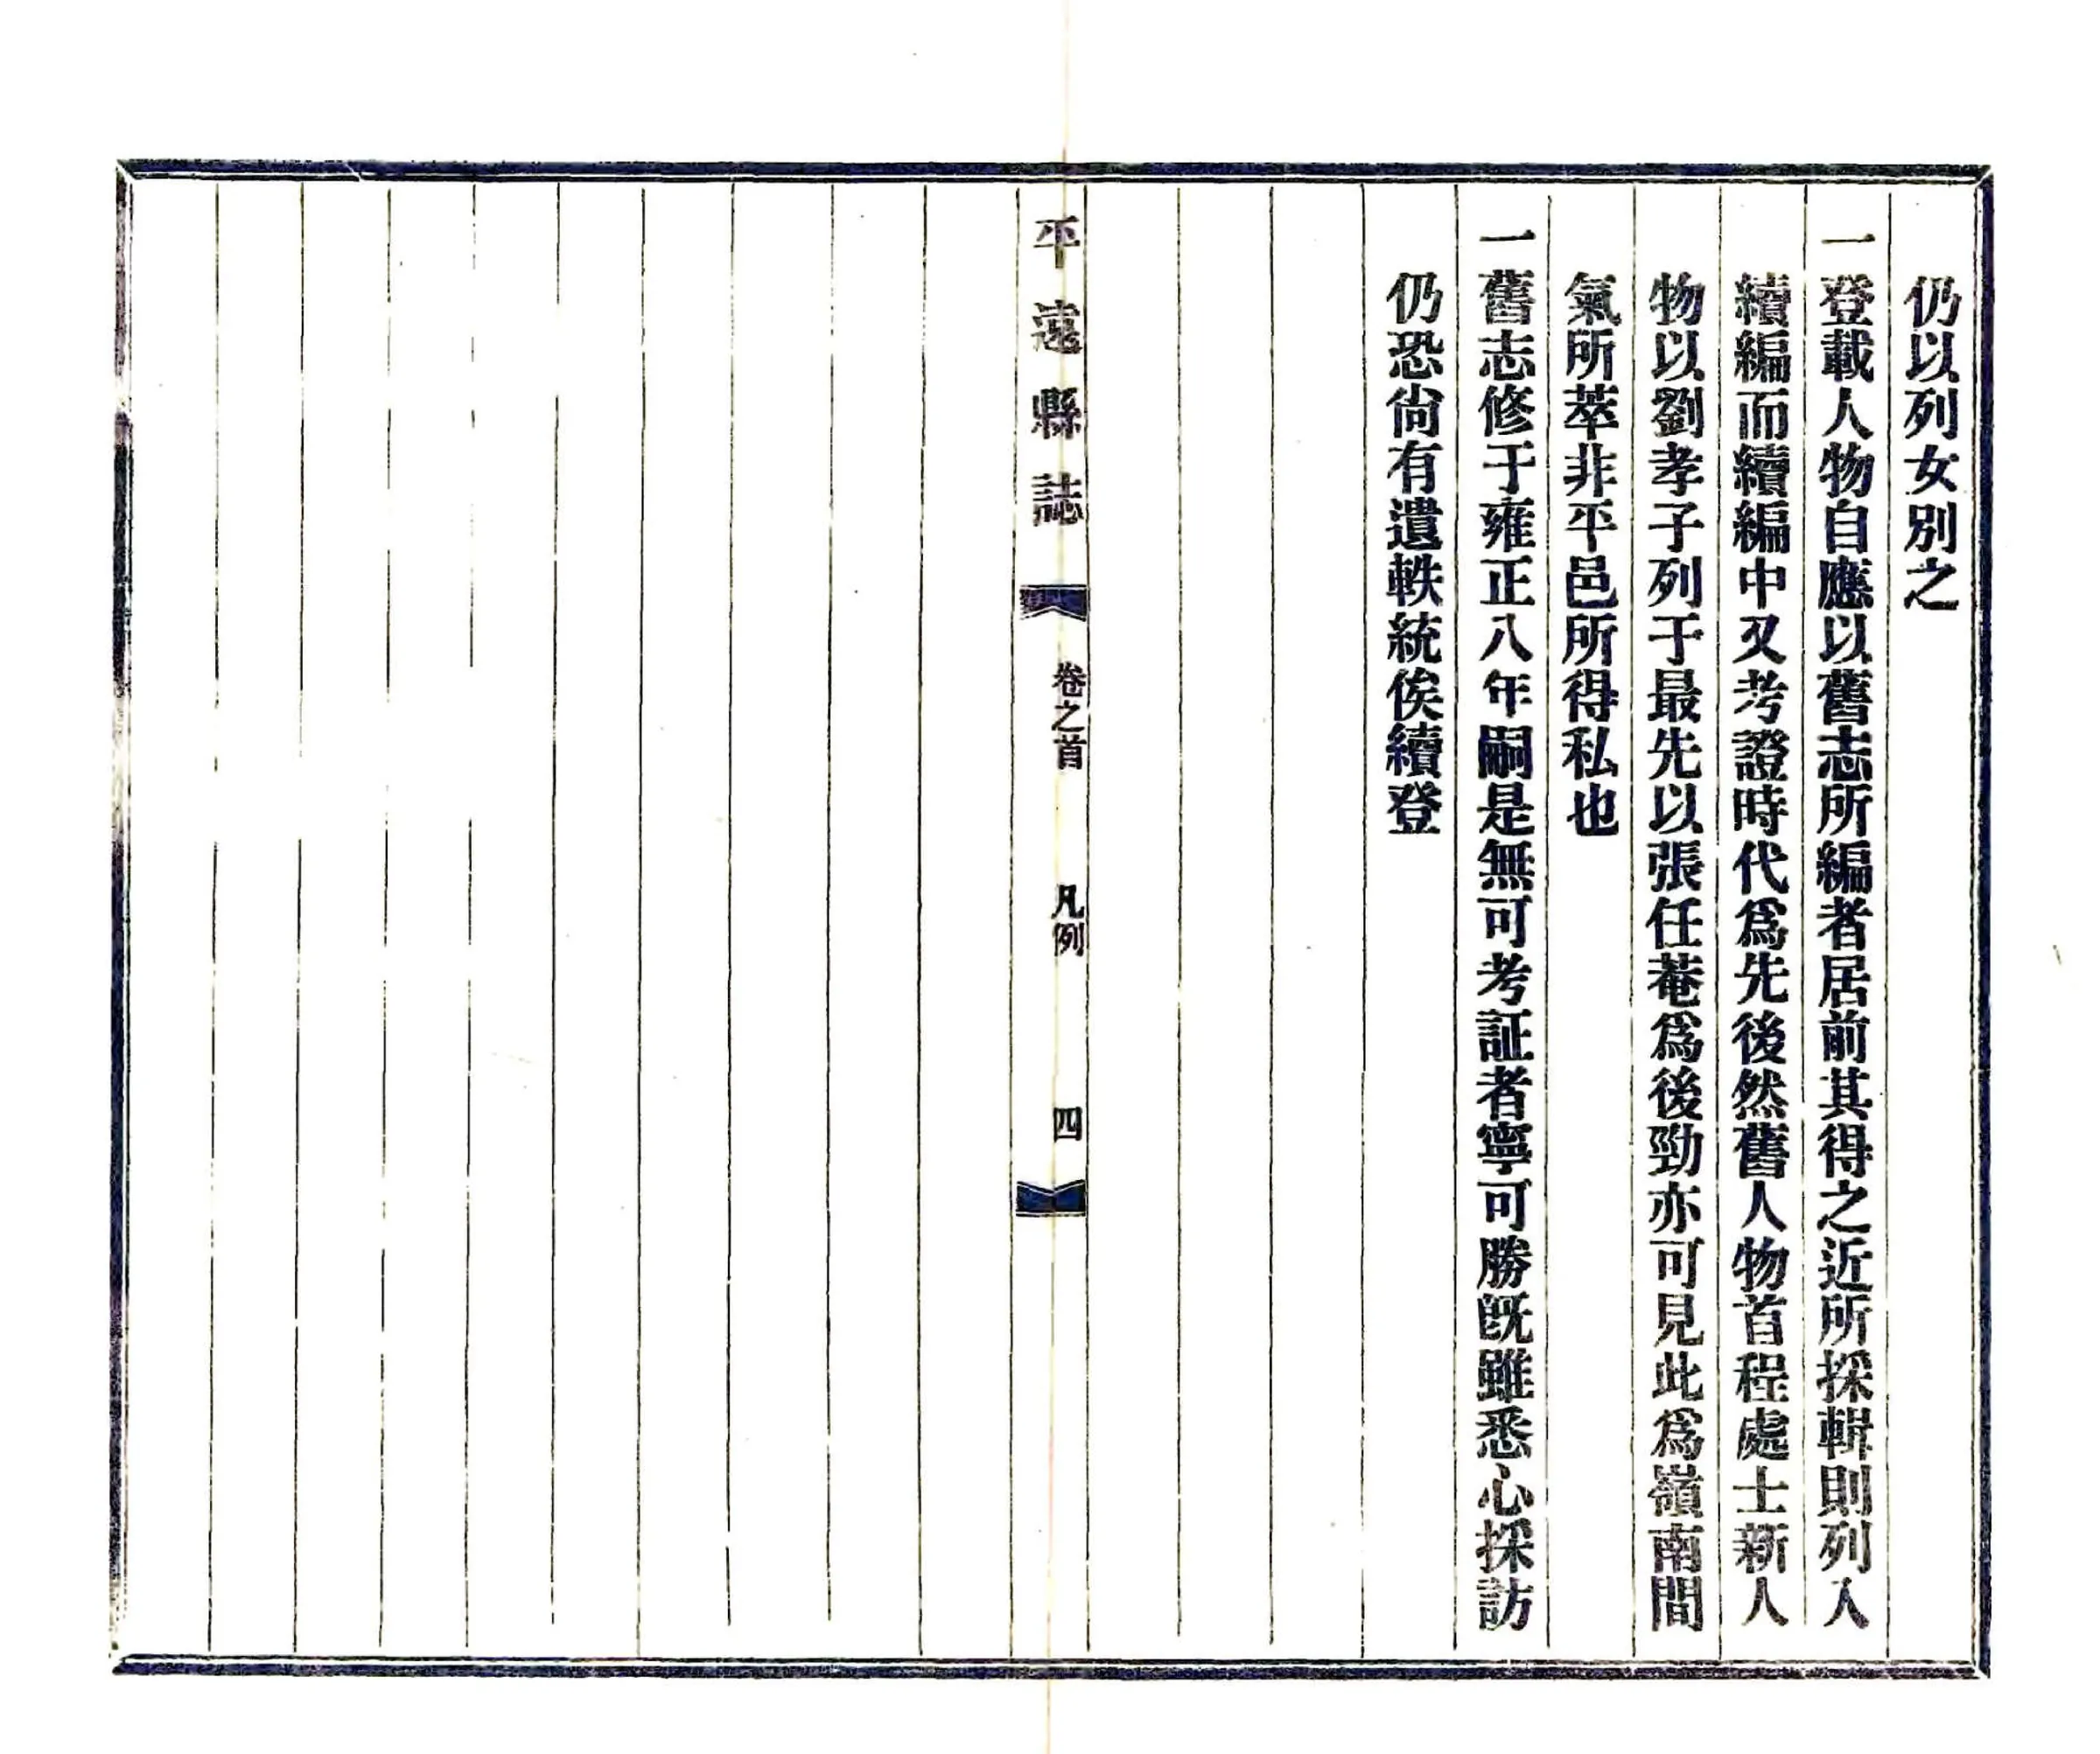 仍以列女別之
一登載人物自應以舊志所編者居前其得之近所採輯則列入
續編而續編中又考證時代爲先後然舊人物首程處士新人
物以劉孝子列于最先以張任菴爲後勁亦可見此爲嶺南間
氣所萃非平邑所得私也
一舊志修于雍正八年嗣是無可考証者寧可勝旣雖悉心採訪
仍恐尙有遺軼統俟續登
平遠縣誌
卷之首
凡例
四